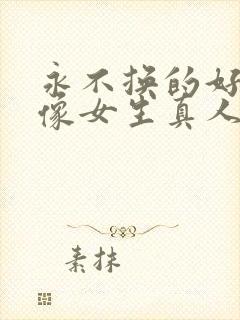 永不换的好
像女生真人
素抹